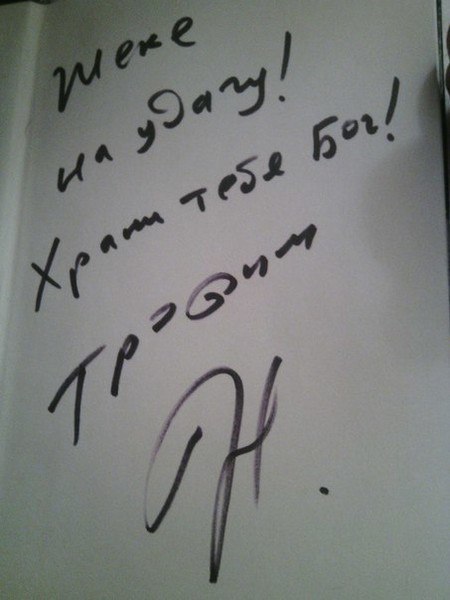 Жеке
на удачу!
Храни тебя Бог!
Трофим